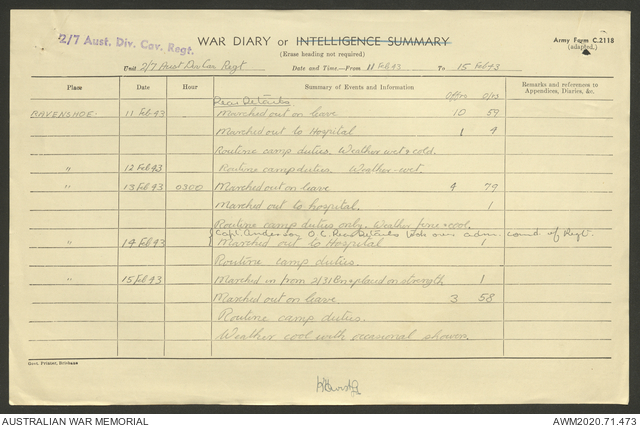 2/7 Aust. Div. Cav. Regt.
WAR DIARY or INTELLIGENCE SUMMARY
(Erase heading not required)
Army Form C.2118
(adapted.)
Unit 2/7 Aust Div Cav Regt Date and Time—From 11 Feb 43 To 15 Feb 43
Place Date Hour Summary of Events and Information Remarks and references to Appendices, Diaries, &c.
Rear Details Offrs ORs
RAVENSHOE. 11 Feb 43 Marched out on leave 10 59
Marched out to Hospital 1 4
Routine camp duties. Weather wet & cold.
" 12 Feb 43 Routine camp duties. Weather - wet.
" 13 Feb 43 0300 Marched out on leave 4 79
Marched out to hospital. 1
Routine camp duties only. Weather fine & cool.
Capt Anderson O.C. Rear Details took over adm. comd. of Regt.
" 14 Feb 43 Marched out to Hospital 1
Routine camp duties.
" 15 Feb 43 Marched in from 2/31 Bn & placed on strength 1
Marched out on leave. 3 58
Routine camp duties.
Weather cool with occasional showers.
Govt. Printer, Brisbane
AUSTRALIAN WAR MEMORIAL
AWM2020.71.473